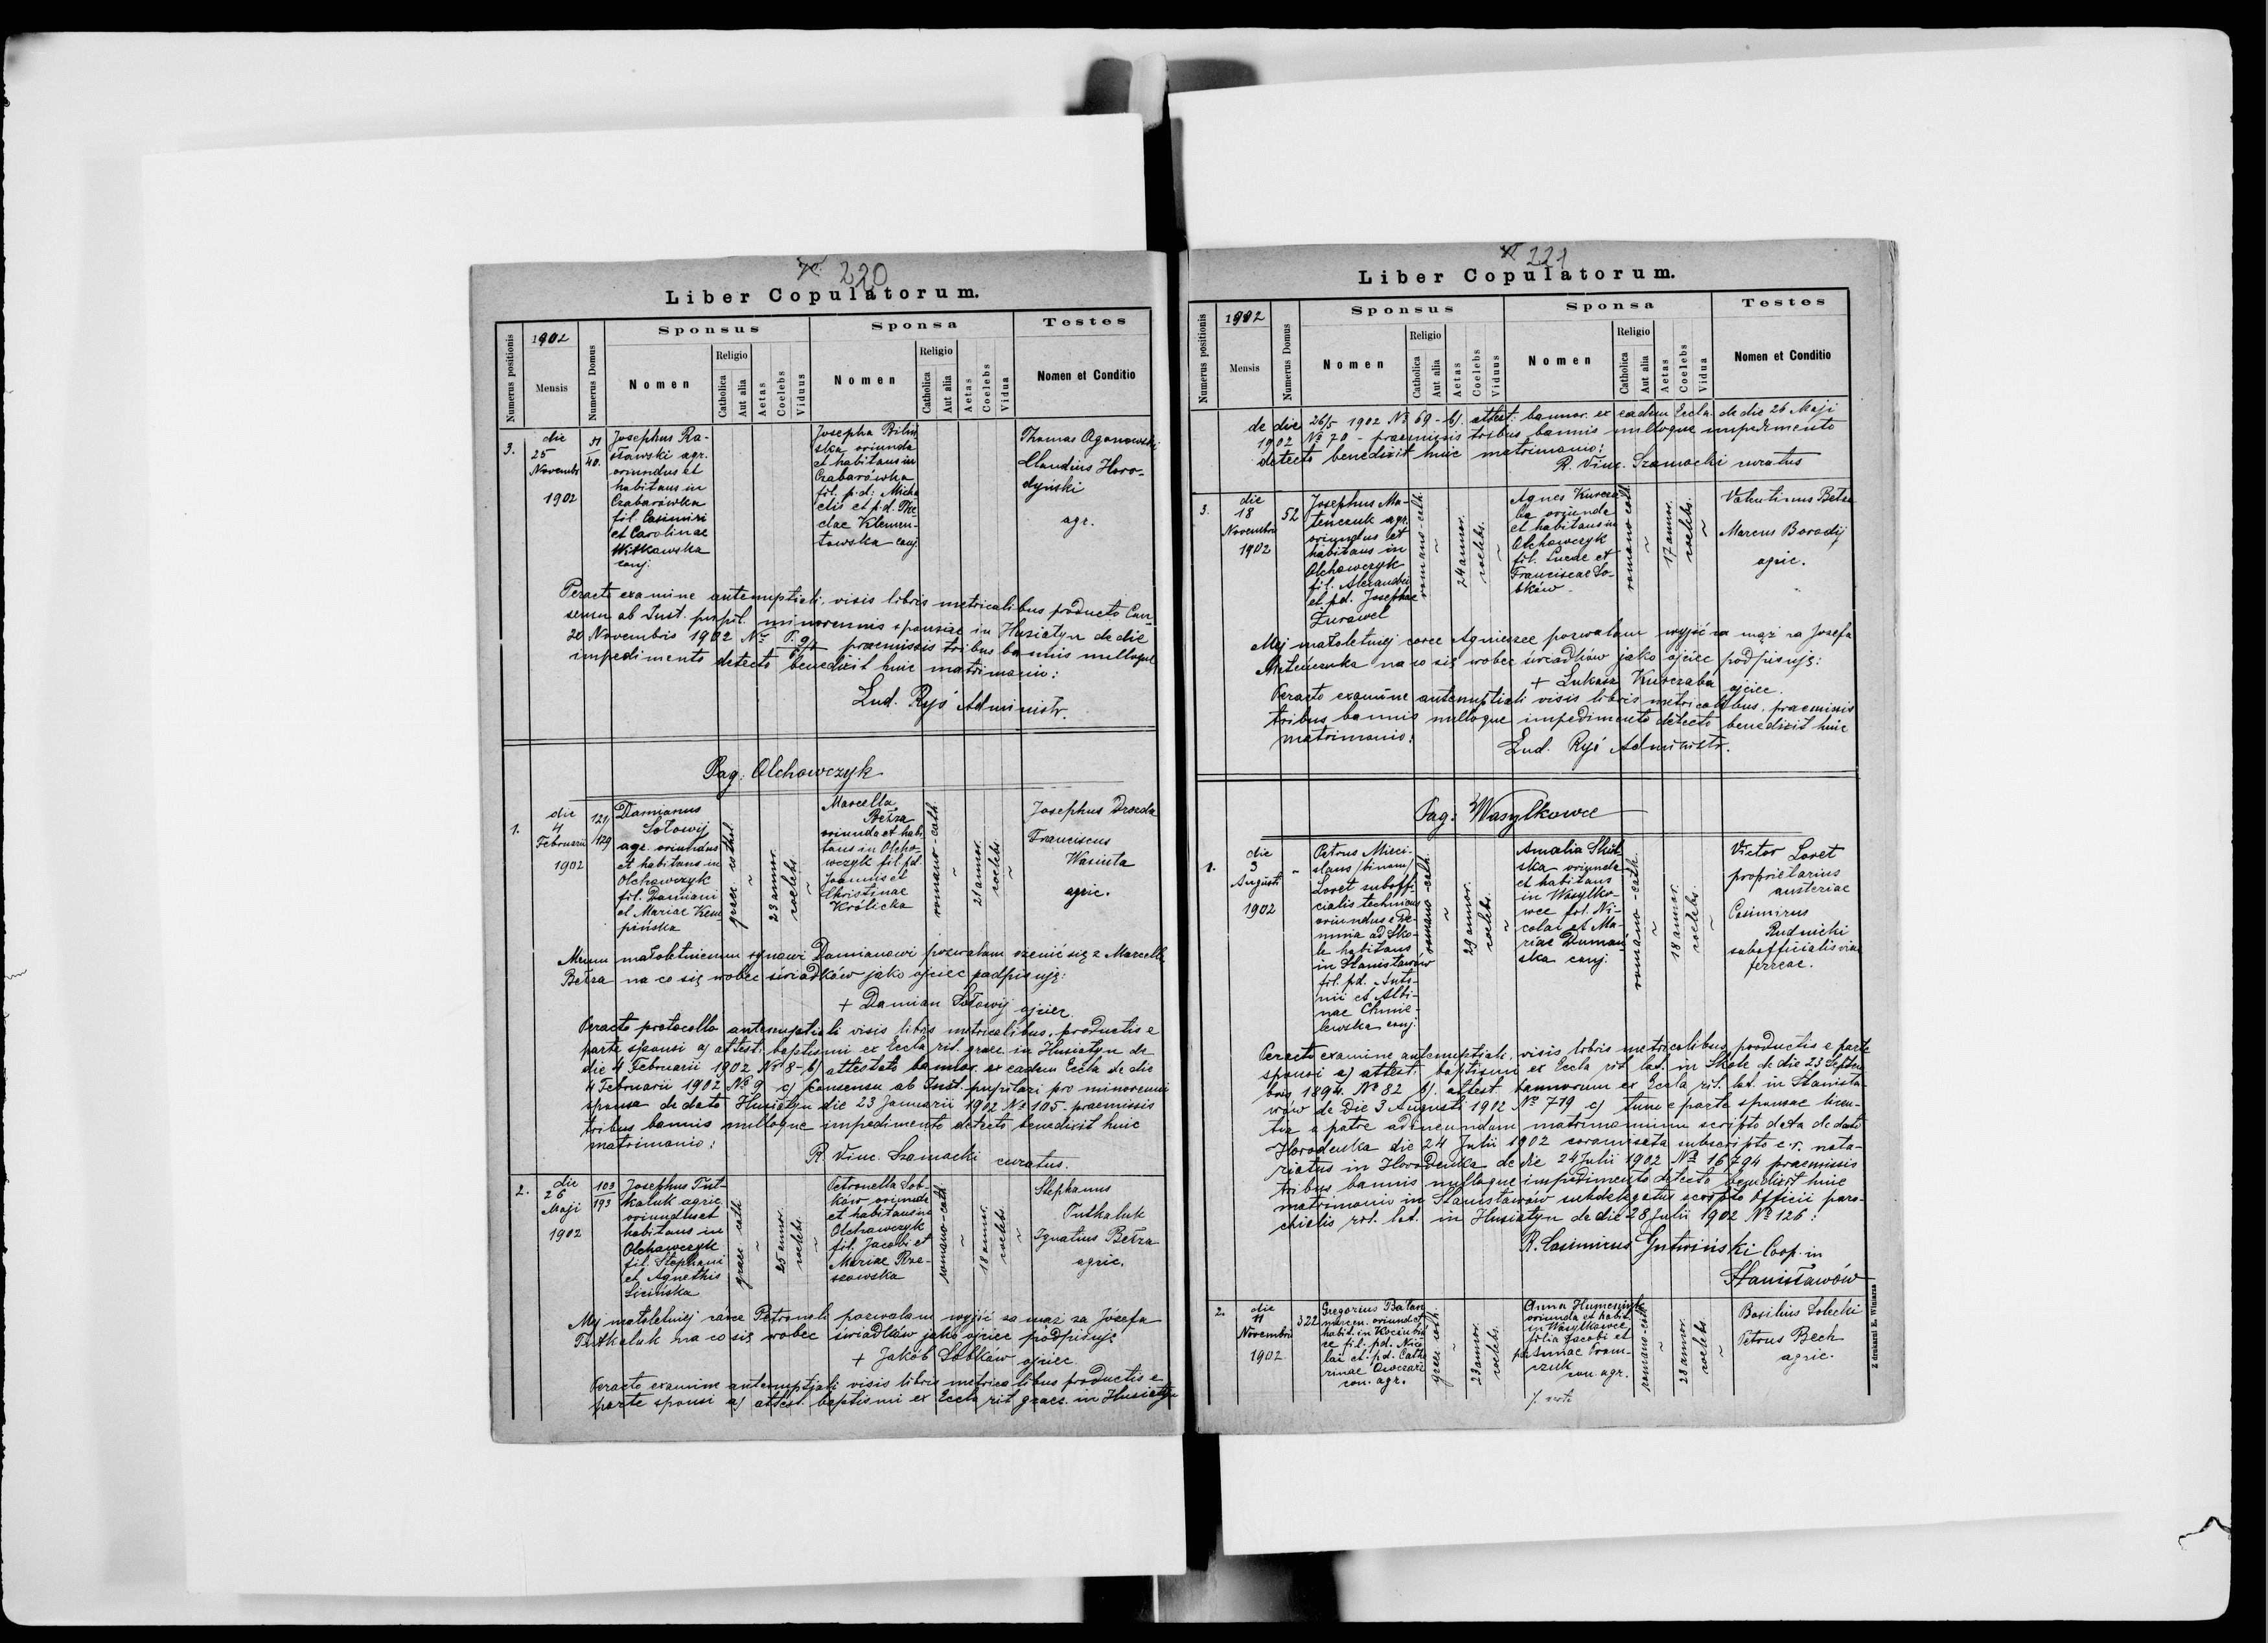 220
Liber Copulatorum.
Numerus positionis
1902
Mensis
Numerus Domus
Sponsus
Nomen
Religio
Catholica
Aut alia
Aetas
Coelebs
Viduus
Sponsa
Nomen
Religio
Catholica
Aut alia
Aetas
Coelebs
Vidua
Testes
Nomen et Conditio
3.
die
25
Novembr
1902
40.
Josephus Ra-
oriundus et
habitans in
Czabarówka
fil. Casimiri
et Carolinae
Witkowska
conj.
Josepha Biliń
ska oriunda
et habitans in
Czabarówka
fil. p.d. Micha
elis et p.d. The-
clae Klemen-
towska conj.
Thomas Aganowski
Claudius Horo-
dyński
agr.
Peracto examine antenuptiali, visis libris metricalibus producto Con-
sensu ab Inst. pupil. minorennis sponsae in Husiatyn de die
20 Novembris 1902 № praemissis tribus bannis nulloque
impedimento detecto benedixit huic matrimonio:
Lud. Ryś Administr.
Pag: Olchowczyk
1.
die
4
Februarii
1902
121/
129
Damianus
Sołowij
agr. oriundus
et habitans in
Olchowczyk
fil. Damiani
et Mariae Kem
pińska
graec. cathol.
~
23 annor.
coelebs
~
Marcella
Bełza
oriunda et habi
tans in Olcho-
wczyk fil. p.d.
Joannis et
Christinae
Królicka
romano-cath.
~
21 annor.
coelebs
~
Josephus Drozda
Franciscus
Wasiuta
agric.
Memu małoletniemu synowi Damianowi pozwalam ożenić się z Marcellą
Bełza na co się wobec świadków jako ojciec podpisuję:
+ Damian Sołowij ojciec.
Peracto protocollo antenuptiali visis libris metricalibus, productis e
parte sponsi a) attest. baptismi ex Eccla rit. graec in Husiatyn de
die 4 Februarii 1902 № 8 - b) attestato bannor. ex eadem Eccla de die
4 Februarii 1902 № 9 c) Consensu ab Inst. pupillari pro minorenni
sponsa de dato Husiatyn die 23 Januarii 1902 № 105 - praemissis
tribus bannis nulloque impedimento detecto benedixit huic
matrimonio:
R. Vinc. Szamocki curatus.
2.
die
26
Maji
1902
103
193
Josephus Tut-
kaluk agric.
oriundus et
habitans in
Olchowczyk
fil. Stephani
et Agnethis
Licińska
graec. cath
~
25 annor.
coelebs.
~
Petronella Sob-
ków oriunda
et habitans in
Olchowczyk
fil. Jacobi et
Mariae Rze-
szowska
romano-cath.
~
18 annor.
coelebs.
~
Stephanus
Tutkaluk
Ignatius Bełza
agric.
Mej małoletniej córce Petroneli pozwalam wyjść za mąż za Józefa
Tutkaluk na co się wobec świadków jako ojciec podpisuję
+ Jakób Sobków ojciec
Peracto examine antenuptiali visis libris metricalibus productis e
parte sponsi a) attest. baptismi ex Eccla rit graec. in Husiatyn
221
Liber Copulatorum.
Numerus positionis
1902
Mensis
Numerus Domus
Sponsus
Nomen
Religio
Catholica
Aut alia
Aetas
Coelebs
Viduus
Sponsa
Nomen
Religio
Catholica
Aut alia
Aetas
Coelebs
Vidua
Testes
Nomen et Conditio
de die 26/5 1902 № 69 - b). attest: bannor. ex eadem Eccla. de die 26 Maji
1902 № 70 - praemissis tribus bannis nulloque impedimento
detecto benedixit huic matrimonio:
R. Vinc. Szamocki curatus
3.
die
18
Novembris
1902
52
Josephus Ma-
teńczuk agr.
oriundus et
habitans in
Olchowczyk
fil. Alexandri
et p.d. Josephae
Żurawel
romano-cath.
~
24 annor.
coelebs.
~
Agnes Kurcza
ba oriunda
et habitans in
Olchowczyk
fil. Lucae et
Franciscae So-
bków
romano cath.
~
17 annor.
coelebs.
~
Valentinus Bełza
Marcus Borodij
agric.
Mej małoletniej córce Agnieszce pozwalam wyjść za mąż za Josefa
Mateńczuka na co się wobec świadków jako ojciec podpisuję:
+ Łukasz Kurczaba ojciec.
Peracto examine antenuptiali visis libris metricalibus, praemissis
tribus bannis nulloque impedimento detecto benedixit huic
matrimonio:
Lud. Ryś Administr.
Pag: Wasylkowce
1.
die
3
Augusti
1902
"
Petrus Mieci-
slaus /binom/
Loret suboffi-
cialis technicus
oriundus e De-
mnia ad Sko-
le habitans
in Stanisławów
fil. p.d. Anto-
nii et Albi-
nae Chmie-
lewska conj.
romano-cath.
~
29 annor.
coelebs.
~
ska oriunda
et habitans
in Wasylko-
wce fil. Ni-
colai et Ma-
riae Duman-
ska conj.
romano-cath.
~
18 annor.
coelebs.
~
Victor Loret
proprietarius
austeriae
Casimirus
Rudnicki
subofficialis viae
ferreae.
Peracto examine antenuptiali, visis libris metricalibus, productis e parte
sponsi a) attest. baptismi ex Eccla rit lat. in Skole de die 23 Septem
bris 1894. № 82 b). attest. bannorum ex Eccla rit. lat. in Stanisła-
wów de die 3 Augusti 1902 № 719 c) tum e parte sponsae licen-
tia a patre ad ineundum matrimonium scripto data de dato
Horodenka die 24 Julii 1902 coramisata subscripto c. r. nota-
riatus in Horodenka de die 24 Julii 1902 № 16794 praemissis
tribus bannis nulloque impedimento detecto benedixit huic
matrimonio in Stanisławów subdelegatus scripto Officii paro-
chialis rit. lat. in Husiatyn de die 28 Julii 1902 № 126:
R. Casimirus Gutwiński Coop. in
Stanisławów
2.
die
11
Novembris
1902
322
Gregorius Bałan
mercen. oriund. et
habit. in Kociubiń
ce fil. p.d. Nico
lai et p.d. Cathe
rinae Owczarz
con. agr.
graec. cath.
~
23 annor.
coelebs.
~
Anna Humeniuk
oriunda et habit.
in Wasylkowce
filia Jacobi et
pd. Annae
con. agr.
romano-cath.
~
28 annor.
coelebs
~
Basilius Solecki
Petrus Bech
agric.
/. verte
Z drukarni E. Winiarza